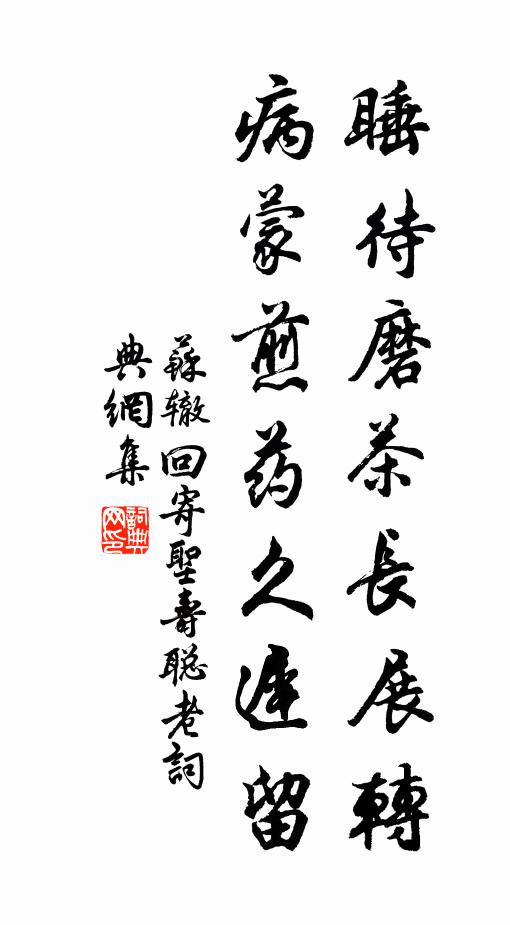 睡待磨茶長展轉
病蒙煎药久遲留
蘇辙回寄聖壽聡老詞
典網集
詞典
网印